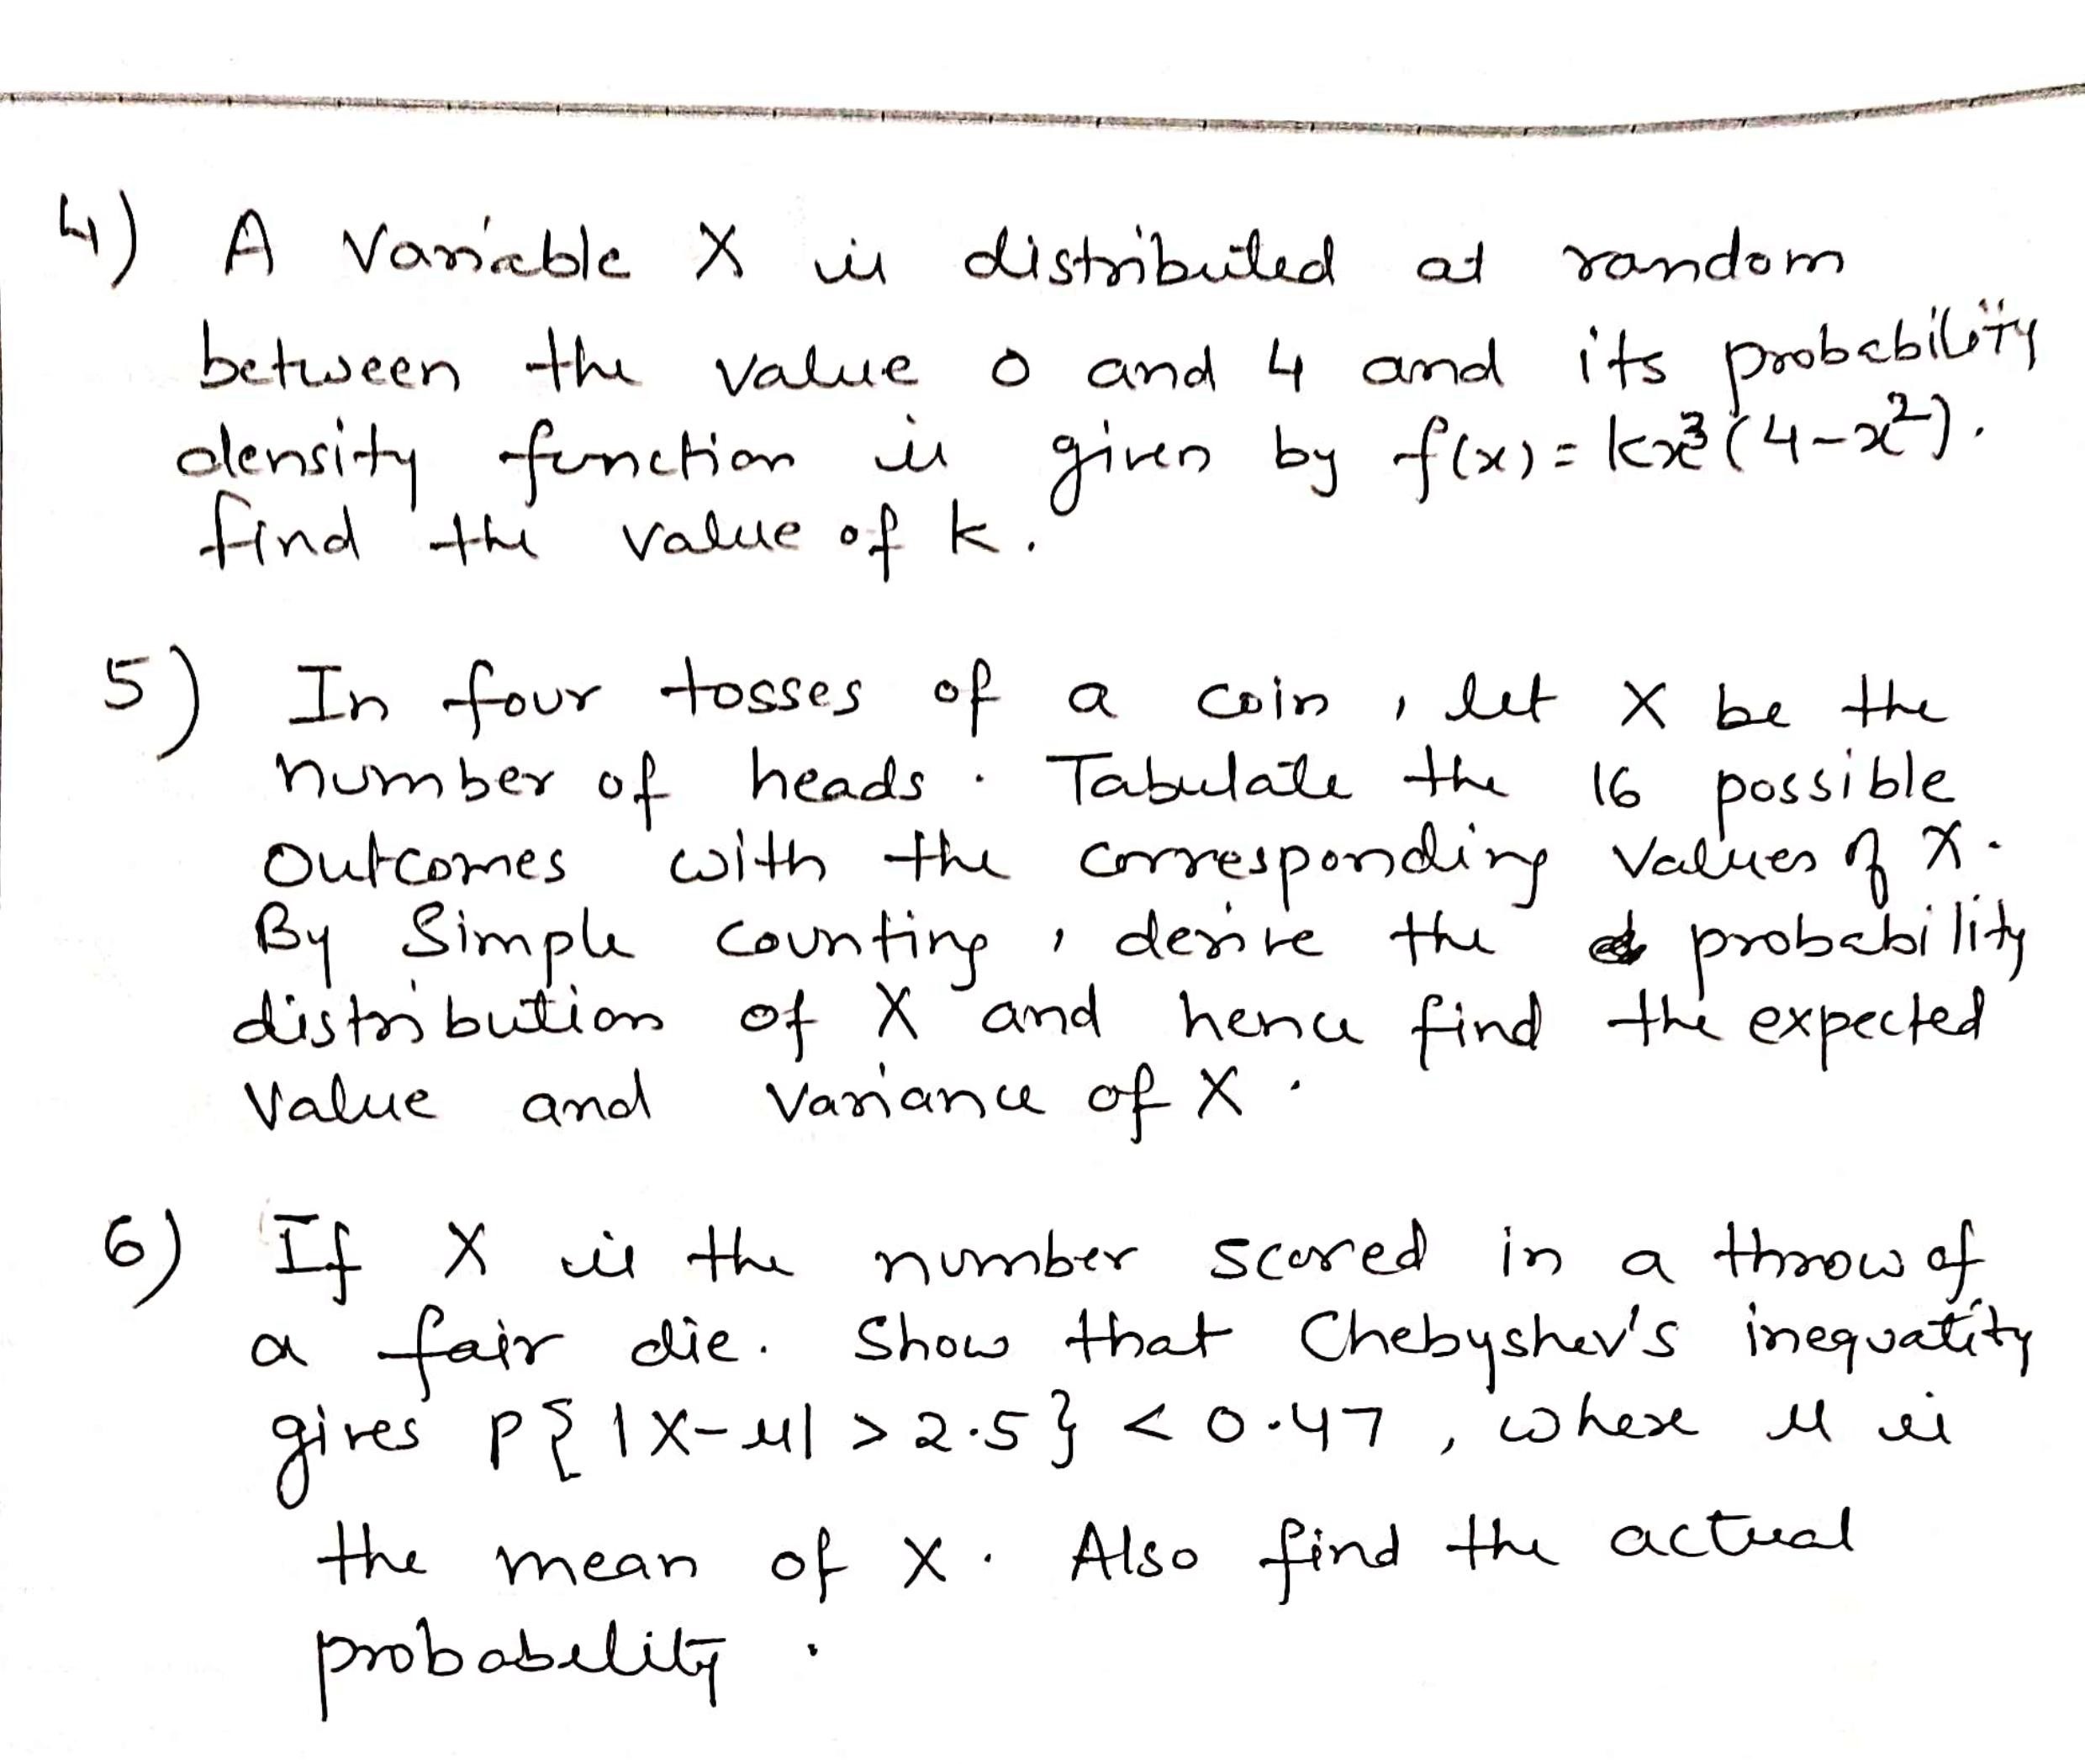 4) A Variable X is distributed at random
between the value 0 and 4 and its probability
density function is given by f(x) = kx³(4-x²).
find the value of k.
5) In four tosses of a coin, let X be the
number of heads. Tabulate the 16 possible
Outcomes with the corresponding values of X.
By Simple counting, derive the probability
distribution of X and hence find the expected
Value and Variance of X.
6) If X is the number scored in a throw of
a fair die. Show that Chebyshev's inequality
gives P{|X-μ| > 2.5} < 0.47, where μ is
the mean of X. Also find the actual
probability.